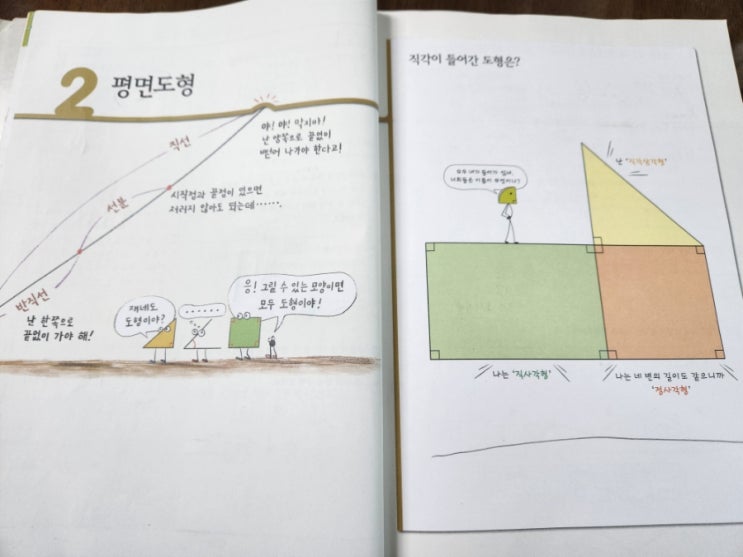 2 평면도형
야! 야! 막지마!
난 양쪽으로 끝없이
뻗어 나가야 한다고!
직선
시작점과 끝점이 있으면
저러지 않아도 되는데…….
선분
반직선
난 한쪽으로
끝없이 가야 해!
쟤네도
도형이야?
......
응! 그릴 수 있는 모양이면
모두 도형이야!
직각이 들어간 도형은?
모두 내가 들어가 있네.
너희들은 이름이 무엇이니?
난 '직각삼각형'
나는 '직사각형'
나는 네 변의 길이도 같으니까
'정사각형'